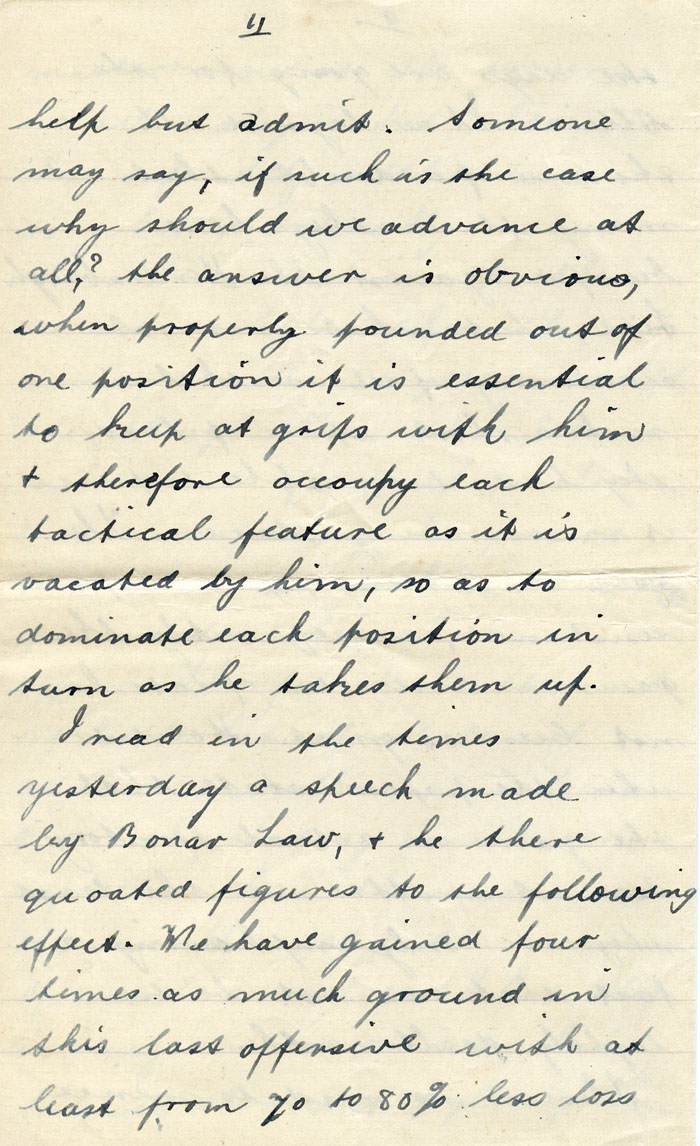 11
help but admit. Someone
may say, if such is the case
why should we advance at
all,? the answer is obvious,
when properly pounded out of
one position it is essential
to keep at grips with him
+ therefore occoupy each
tactical feature as it is
vacated by him, so as to
dominate each position in
turn as he takes them up.
I read in the times
yesterday a speech made
by Bonar Law, + he there
quoated figures to the following
effect. We have gained four
times as much ground in
this last offensive with at
least from 70 to 80% less loss